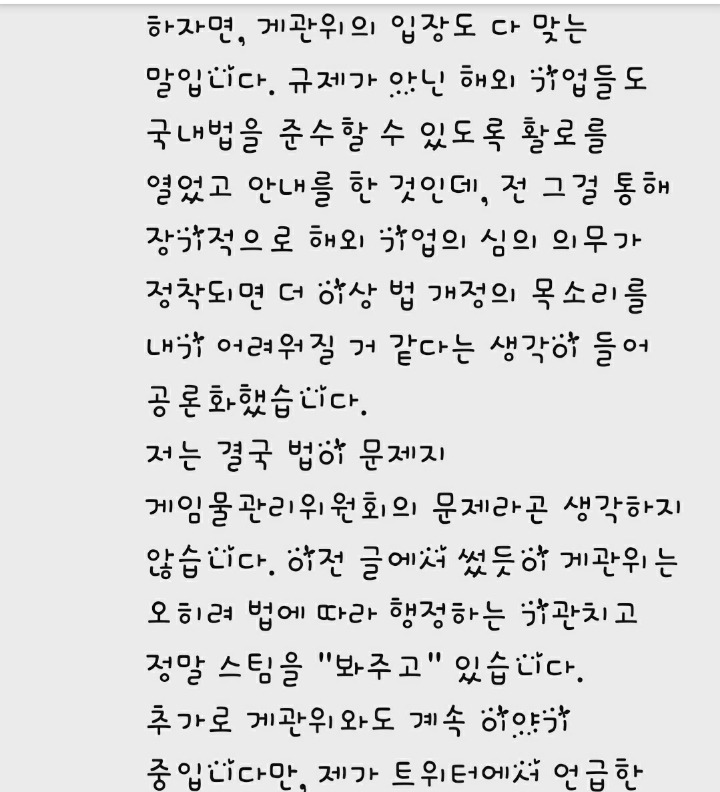 하자면, 게관위의 입장도 다 맞는
말입니다. 규제가 아닌 해외 기업들도
국내법을 준수할 수 있도록 활로를
열었고 안내를 한 것인데, 전 그걸 통해
장기적으로 해외 기업의 심의 의무가
정착되면 더 이상 법 개정의 목소리를
내기 어려워질 거 같다는 생각이 들어
공론화했습니다.
저는 결국 법이 문제지
게임물관리위원회의 문제라곤 생각하지
않습니다. 이전 글에서 썼듯이 게관위는
오히려 법에 따라 행정하는 기관치고
정말 스팀을 "봐주고" 있습니다.
추가로 게관위와도 계속 이야기
중입니다만, 제가 트위터에서 언급한